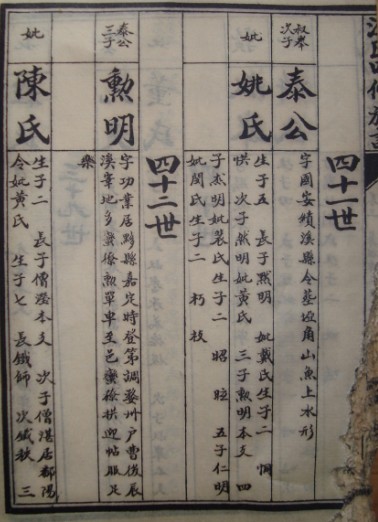 四十一世
叔舉
次子
泰公
字國安績溪縣令墓设角山魚上水形
妣
姚氏
生子五 長子黙明 妣戴氏生子二 惆
烘 次子然明妣黃氏 三子勲明本支 四
子杰明妣裴氏生子二 昭 暄 五子仁明
妣閔氏生子二 朽 枝
四十二世
泰公
三子
勲明
字功業居黟縣嘉定時登第調婺州户曹後辰
溪峯地多蠻徭勲單車至邑蠻徭拱迎帖服足
樂
妣
陳氏
生子二 長子僧澄本支 次子僧湛居鄱陽
令妣黃氏 生子七 長鐵師 次鐵秋 三